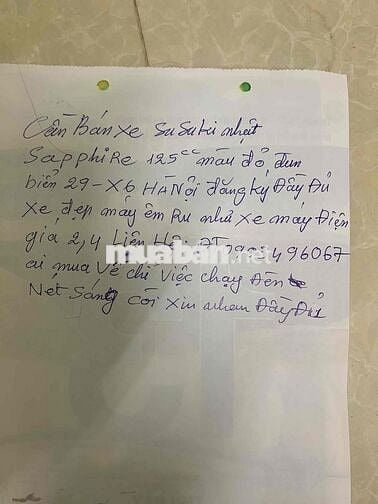 Cần Bán xe SuSuki nhật
Sapphire 125cc màu đỏ đun
biển 29-X6 HÀ Nội đăng ký Đầy Đủ
Xe đẹp máy êm Ru như xe máy Điện
giá 2,4 Liên Hệ: ĐT 496067
muaban.net
ai mua Về chỉ việc chạy Đèn
Net Sáng còi xin nhan Đầy Đủ